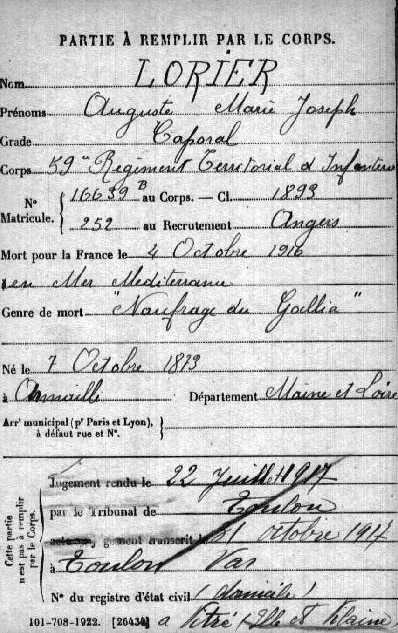 PARTIE À REMPLIR PAR LE CORPS.
Nom LORIER
Prénoms Auguste Marie Joseph
Grade Caporal
Corps 59e Regiment Territorial d'Infanterie
N° Matricule. { 16639 B au Corps. — Cl. 1893
252 au Recrutement Angers
Mort pour la France le 4 Octobre 1916
en Mer Mediterranée
Genre de mort "Naufrage du Gallia"
Né le 7 Octobre 1873
à Armaillé Département Maine et Loire
Arrt municipal (pr Paris et Lyon), à défaut rue et N°. }
Cette partie n'est pas à remplir par le Corps.
Jugement rendu le 22 Juillet 1917
par le Tribunal de Toulon
acte ou jugement transcrit le 31 octobre 1917
à Toulon Var
N° du registre d'état civil (domicile)
101-708-1922. [26434] a Vitré (Ille et Vilaine)